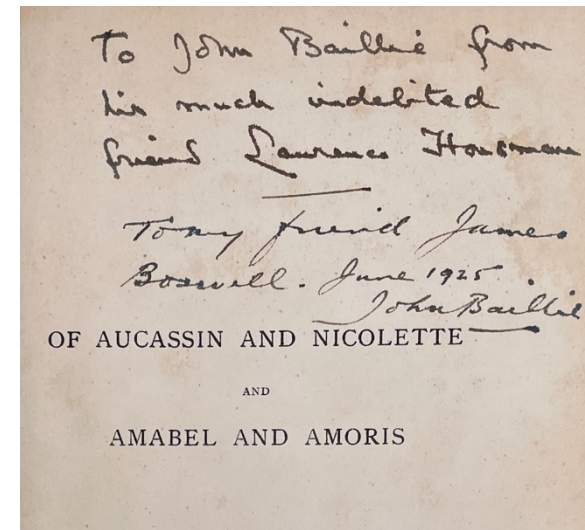 To John Baillie from
his much indebited
friend Laurence Housman
To my friend James
Boswell. June 1925
John Baillie
OF AUCASSIN AND NICOLETTE
AND
AMABEL AND AMORIS